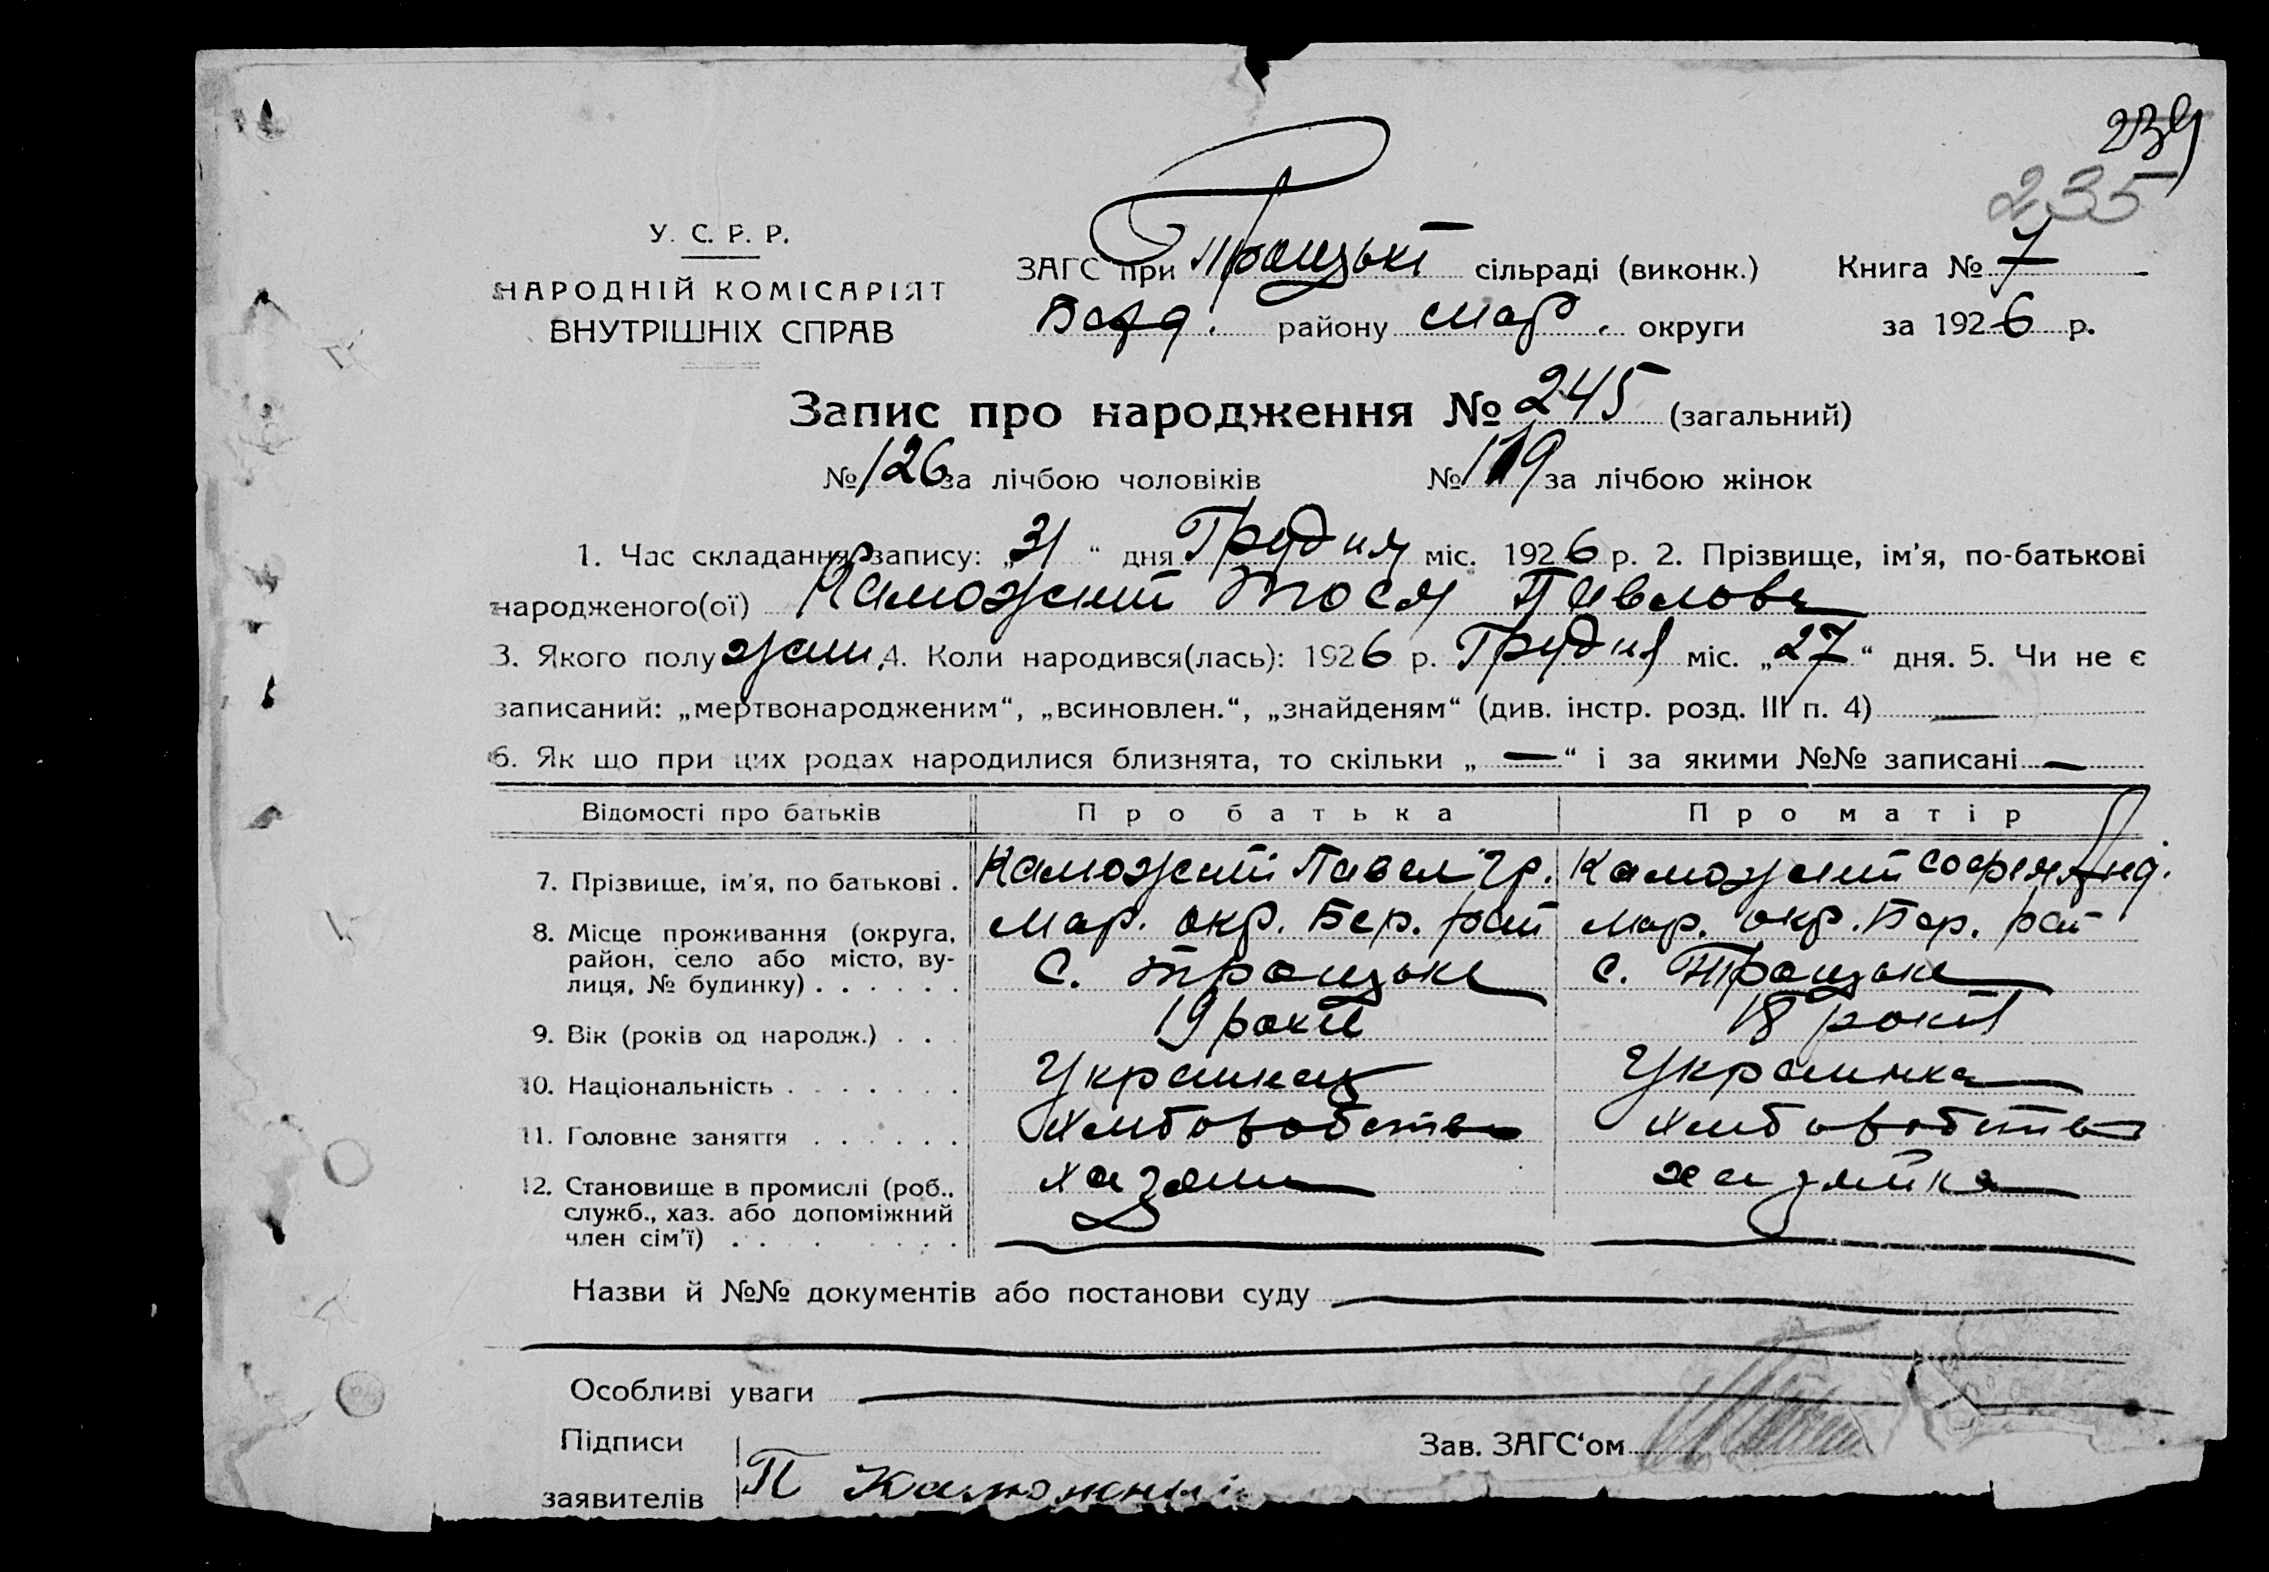 239
235
У. С. Р. Р.
НАРОДНІЙ КОМІСАРІЯТ
ВНУТРІШНІХ СПРАВ
ЗАГС при Троицькі сільраді (виконк.) Книга № 7
Берд. району Мар. округи за 1926 р.
Запис про народження № 245 (загальний)
№ 126 за лічбою чоловіків № 119 за лічбою жінок
1. Час складання запису: „31“ дня Грудня міс. 1926 р. 2. Прізвище, ім'я, по-батькові
народженого(ої) Каможний Тося Павлова
3. Якого полу жін. 4. Коли народився(лась): 1926 р. Грудня міс. „27“ дня. 5. Чи не є
записаний: „мертвонародженим“, „всиновлен.“, „знайденям“ (див. інстр. розд. III п. 4) —
6. Як що при цих родах народилися близнята, то скільки „ — “ і за якими №№ записані —
Відомості про батьків Про батька Про матір
7. Прізвище, ім'я, по батькові . Каможний Павел Гр. Каможний Софія Анд.
8. Місце проживання (округа, район, село або місто, вулиця, № будинку) . . . . . . Мар. окр. Бер. рай Мар. окр. Бер. рай
с. Троицьке с. Троицьке
9. Вік (років од народж.) . . . 19 років 18 років
10. Національність . . . . . . . Украинец Украинка
11. Головне заняття . . . . . . Хлиборобство Хлиборобство
12. Становище в промислі (роб., служб., хаз. або допоміжний член сім'ї) . . . . . . . хазяин хазяйка
Назви й №№ документів або постанови суду
Особливі уваги
Підписи Зав. ЗАГС'ом
заявителів П Каможний